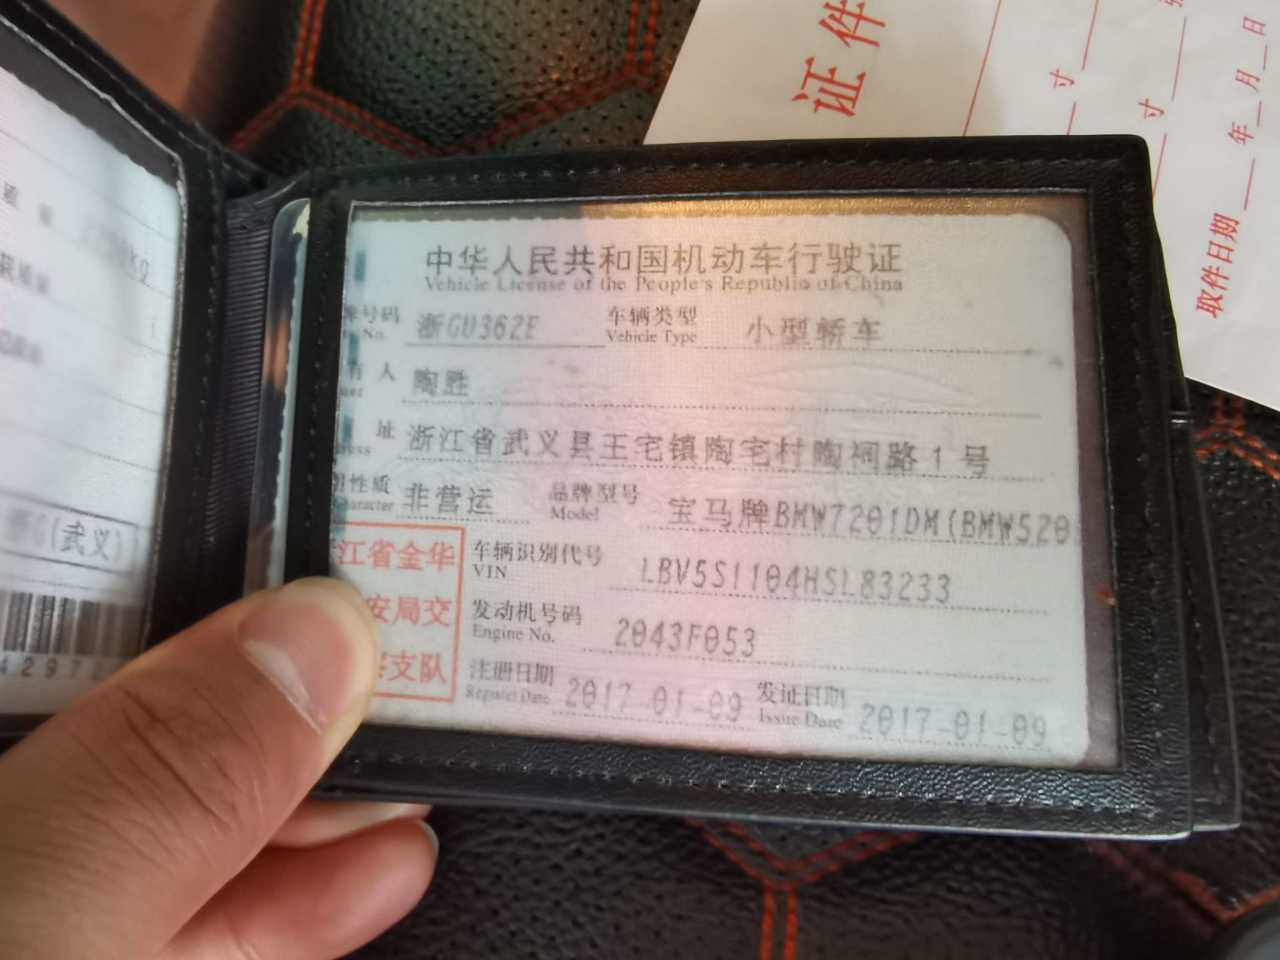 中华人民共和国机动车行驶证
Vehicle License of the People's Republic of China
牌号码 浙GU362E 车辆类型 小型轿车
No. Vehicle Type
有 人 陶胜
址 浙江省武义县王宅镇陶宅村陶祠路1号
用性质 非营运 品牌型号 宝马牌BMW7201DM(BMW520
Character Model
江省金华
安局交
支队
车辆识别代号 LBV5S1104HSL83233
VIN
发动机号码 2043F053
Engine No.
注册日期 2017-01-09 发证日期 2017-01-09
Register Date Issue Date
kg
G(武义)
4297
证件
寸
寸
取件日期 年 月 日